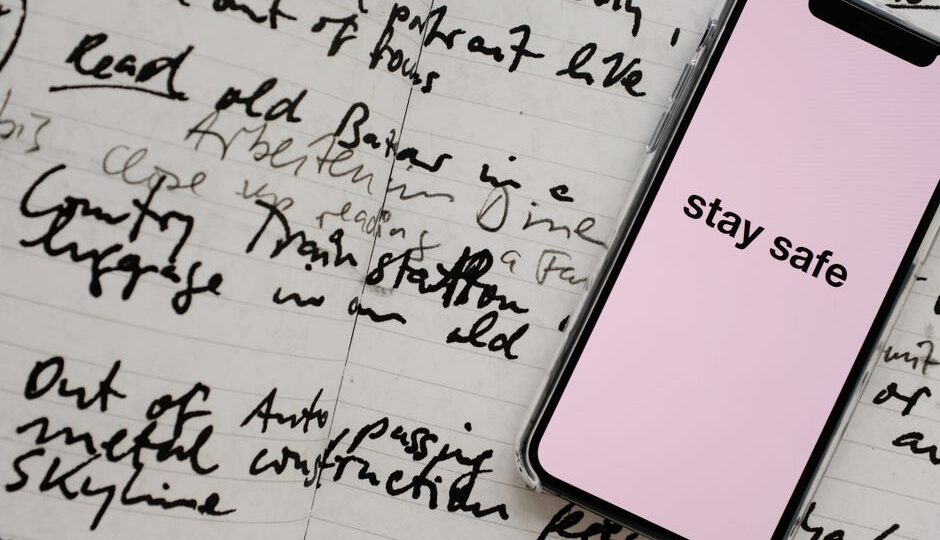 out of portrait like
focus
Read old Bazar in a
Arbeiten in Dine
close up reading a
Country Train station
luggage in an old
Out of Auto, passing
metal construction
Skyline
stay safe
or